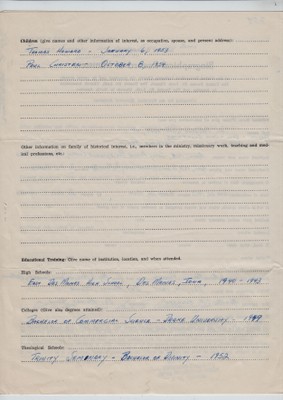 Children (give names and other information of interest, as occupation, spouse, and present address):
Thomas Howard - January 6, 1953
Paul Christian - October 8, 1954
Other information on family of historical interest, i.e., members in the ministry, missionary work, teaching and similar professions, etc.:
Educational Training—Give name of institution, location, and when attended.
High Schools:
East Des Moines High School, Des Moines, Iowa, 1940-1943
Colleges (Give also degrees attained):
Bachelor of Commercial Science - Drake University - 1949
Theological Schools:
Trinity Seminary - Bachelor of Divinity - 1952